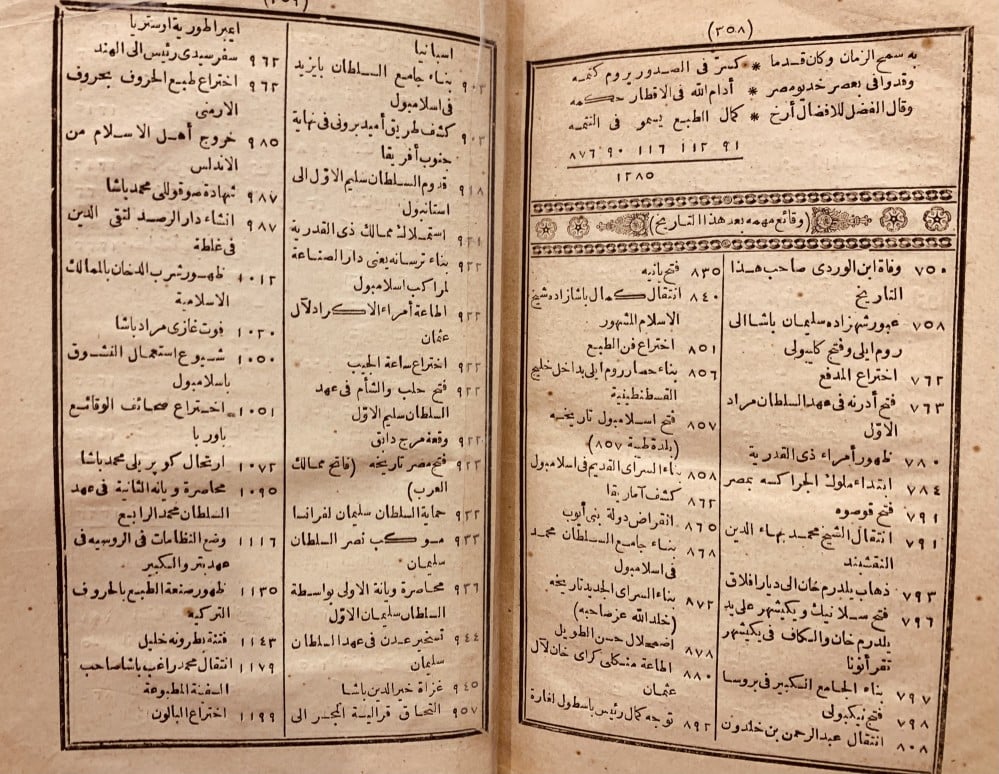 (٣٥٨)
به سمح الزمان وكان قدما * كسرّ فى الصدور يروم كتمه
وقد وافى بعصر خديو مصر * أدام الله فى الاقطار حكمه
وقال الفضل للافضال أرخ * كمال الطبع يسمو فى التتمه
٩١ ١١٢ ١١٦ ٩٠ ٨٧٦
١٢٨٥
(وقائع مهمه بعد هذا التاريخ)
٧٥٠ وفاة ابن الوردى صاحب هذا
التاريخ
٧٥٨ عبور شهزاده سليمان باشا الى
روم ايلى وفتح كليبولى
٧٦٢ اختراع المدفع
٧٦٣ فتح أدرنه فى عهد السلطان مراد
الاوّل
٧٨٠ ظهور أمراء ذى القدرية
٧٨٤ ابتداء ملوك الجراكسه بمصر
٧٩١ فتح قوصوه
٧٩١ انتقال الشيخ محمد بهاء الدين
النقشبند
٧٩٣ ذهاب يلدرم خان الى ديار افلاق
٧٩٦ فتح سلانيك ويكيشهر على يد
يلدرم خان والمكاف فى يكيشهر
تقرأنونا
٧٩٧ بناء الجامع الكبير فى بروسا
٧٩٨ فتح نيكبولى
٨٠٨ انتقال عبد الرحمن بن خلدون
٨٣٥ فتح يانيه
٨٤٠ انتقال كمال باشا زاده شيخ
الاسلام المشهور
٨٥١ اختراع فن الطبع
٨٥٦ بناء حصار روم ايلى بداخل خليج
القسطنطينية
٨٥٧ فتح اسلامبول تاريخه
(بلدة طيبة ٨٥٧)
٨٥٨ بناء السراى القديم فى اسلامبول
٨٦٢ كشف آماريقا
٨٦٥ انقراض دولة بنى أيوب
٨٦٨ بناء جامع السلطان محمد
فى اسلامبول
٨٧٢ بناء السراى الجديد تاريخه
(خلد الله عز صاحبه)
٨٧٨ اضمحلال حسن الطويل
٨٨٠ اطاعة منكلى كراى خان لآل
عثمان
٨٩٢ توجه كمال رئيس باسطول لغارة
(٣٥٩)
اسبانيا
٩٠٣ بناء جامع السلطان بايزيد
فى اسلامبول
٩٠٣ كشف طريق أميد برونى فى نهاية
جنوب أفريقا
٩١٨ قدوم السلطان سليم الاوّل الى
استانبول
٩٢١ استملاك ممالك ذى القدرية
٩٢٢ بناء ترسانه يعنى دار الصناعة
لمراكب اسلامبول
٩٢٢ اطاعة أمراء الاكراد لآل
عثمان
٩٢٢ اختراع ساعة الجيب
٩٢٢ فتح حلب والشأم فى عهد
السلطان سليم الاوّل
٩٢٢ وقعة مرج دابق
٩٢٣ فتح مصر تاريخه (فاتح ممالك
العرب)
٩٣٢ حماية السلطان سليمان لفرانسا
٩٣٣ موكب نصر السلطان
سليمان
٩٣٦ محاصرة ويانة الاولى بواسطة
السلطان سليمان الاوّل
٩٤٤ تسخير عدن فى عهد السلطان
سليمان
٩٤٥ غزاة خير الدين باشا
٩٥٧ التحاق قراليسة المجر الى
اعبراطورية اوستريا
٩٦٢ سفر سيدى رئيس الى الهند
٩٦٢ اختراع طبع الحروف بحروف
الارمنى
٩٨٥ خروج أهل الاسلام من
الاندلس
٩٨٧ شهادة صوقوللى محمد باشا
٩٨٧ انشاء دار الرصد لتقى الدين
فى غلطة
١٠١٢ ظهور شرب الدخان بالممالك
الاسلامية
١٠٢٠ فوت غازى مراد باشا
١٠٥٠ شيوع استعمال النشوق
باسلامبول
١٠٥١ اختراع صحائف الوقائع
باوربا
١٠٧٢ ارتحال كوبريلى محمد باشا
١٠٩٥ محاصرة ويانه الثانية فى عهد
السلطان محمد الرابع
١١١٦ وضع النظامات فى الروسيه فى
عهد بترو الكبير
١١٣٥ ظهور صنعة الطبع بالحروف
التركيه
١١٤٣ فتنة بطرونه خليل
١١٧٩ انتقال محمد راغب باشا صاحب
السفينة المطبوعة
١١٩٩ اختراع البالون